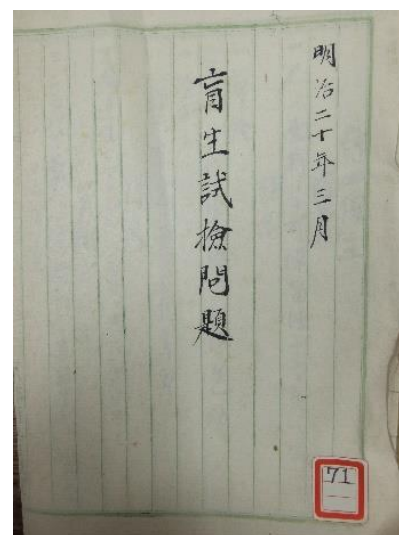 明治二十年三月
盲生試撿問題
71